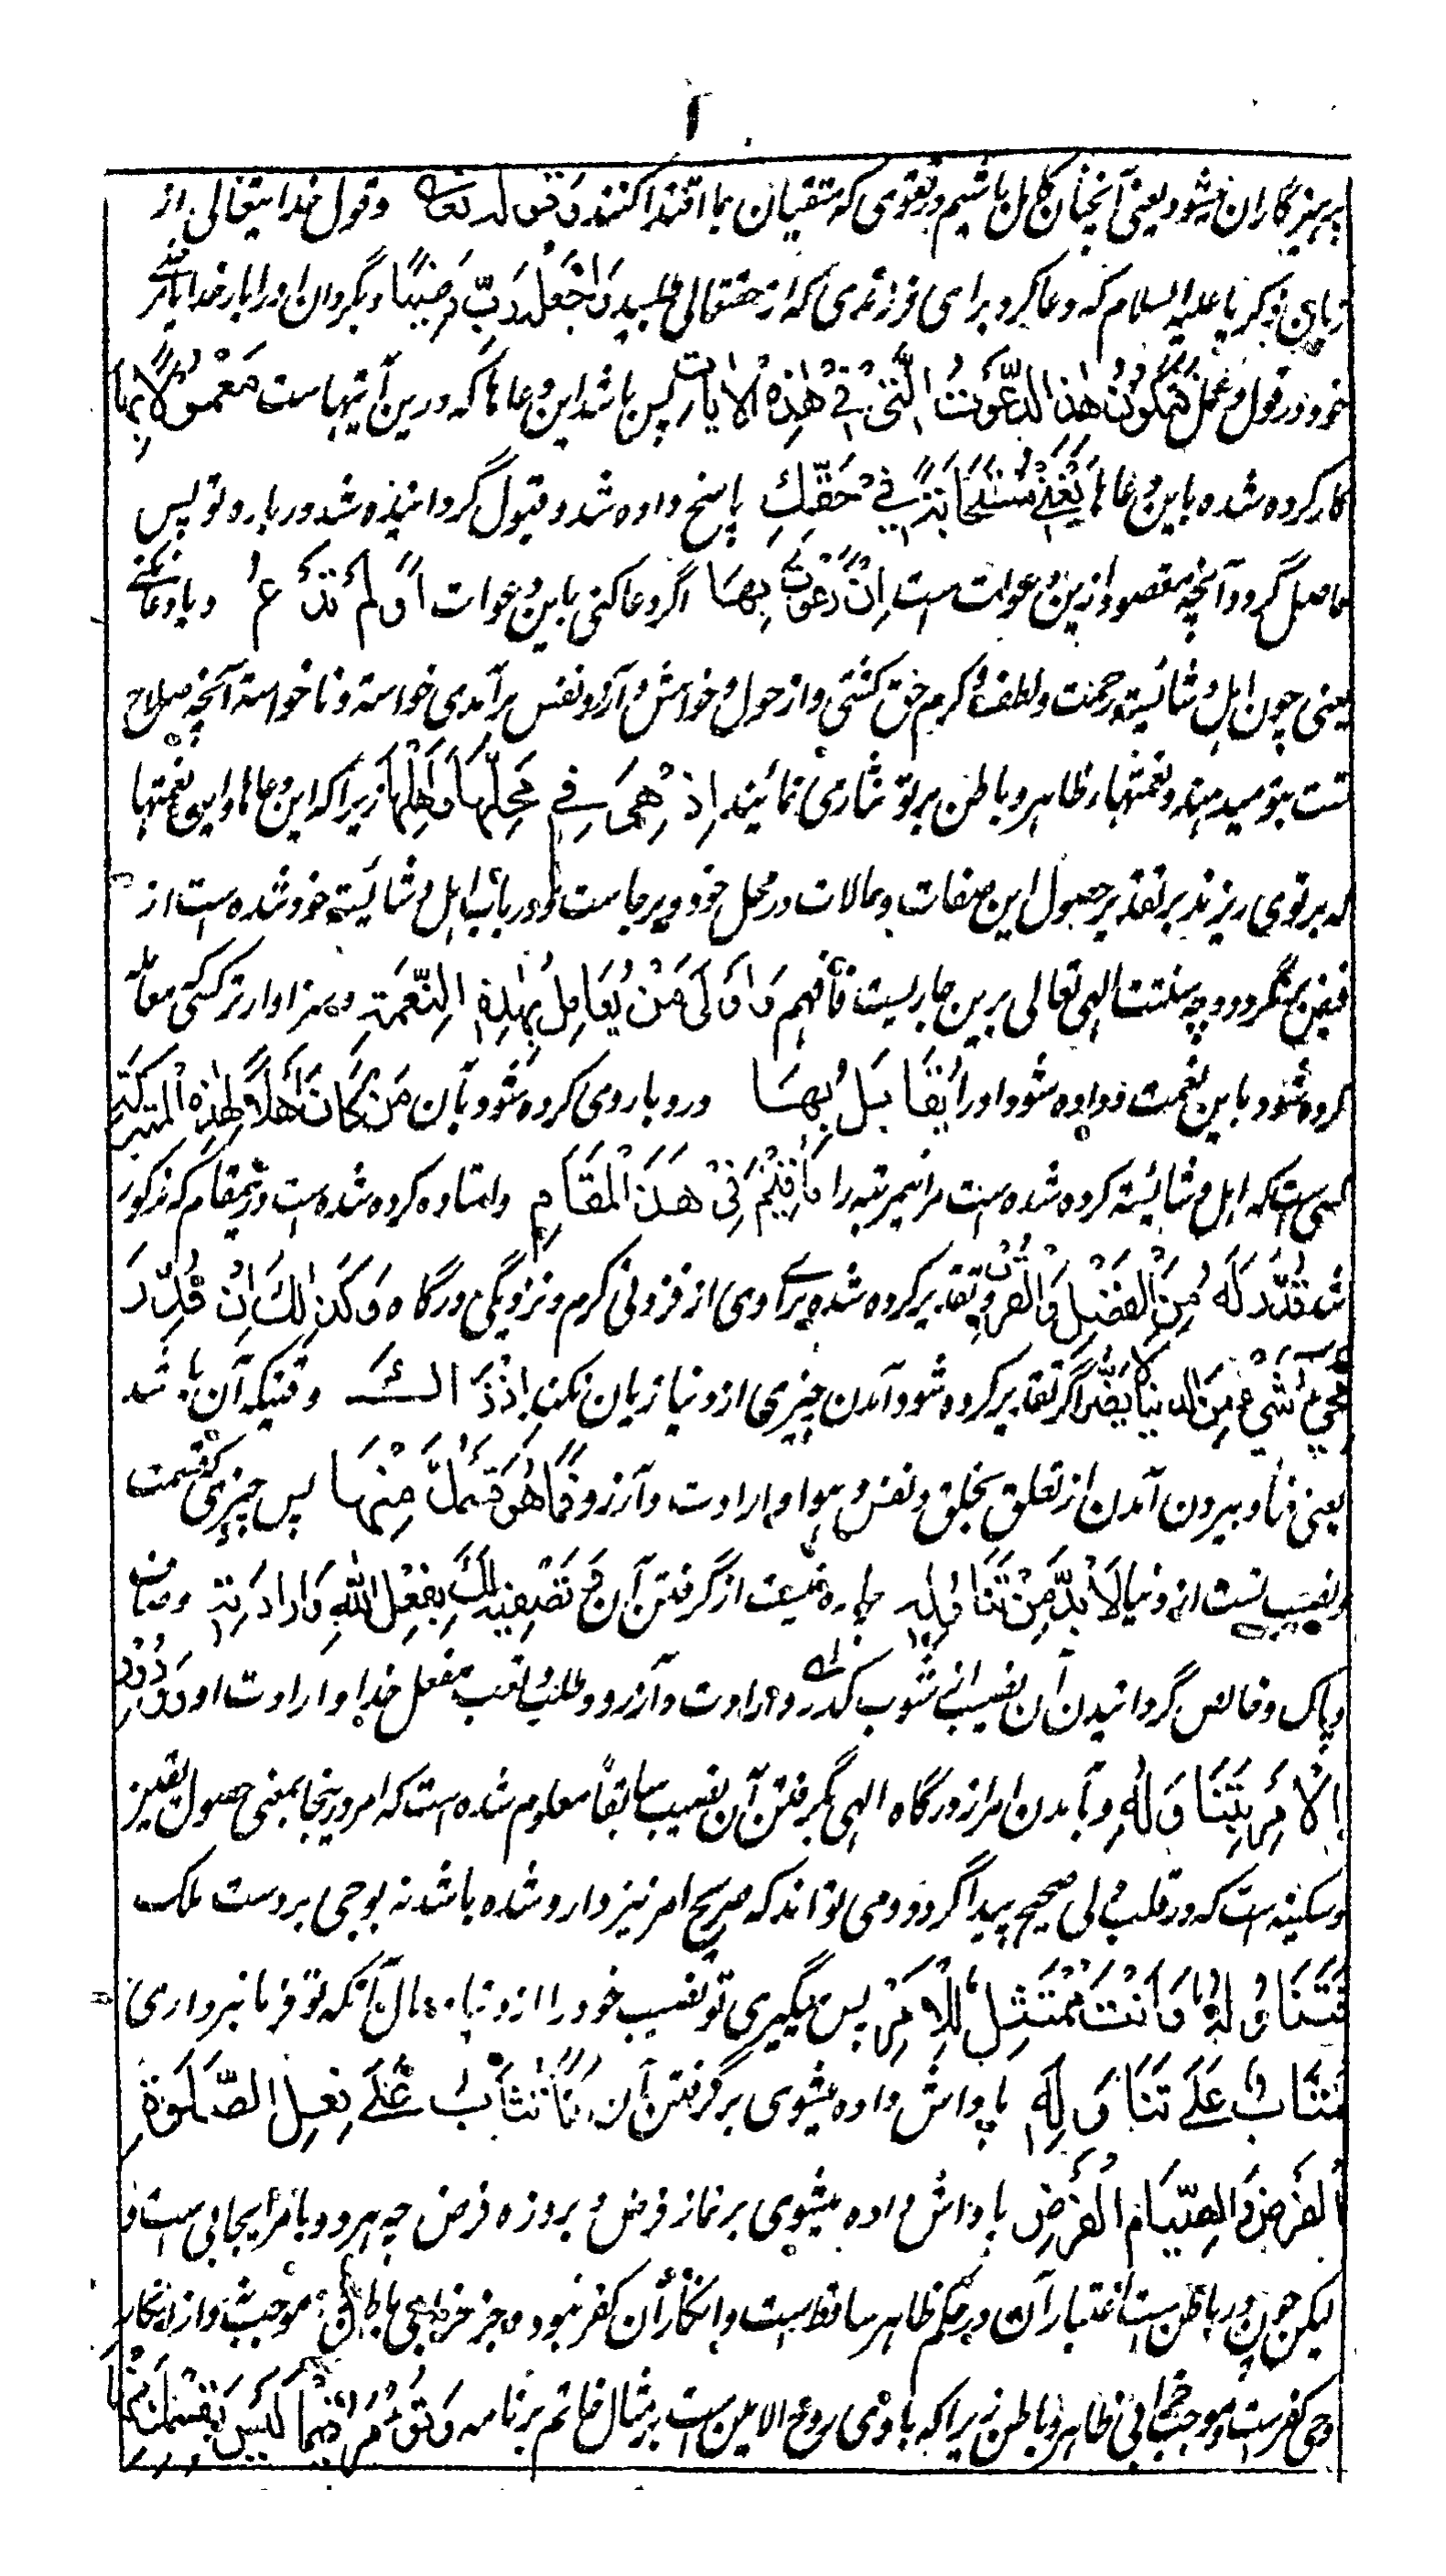 پرهیزگاران میشود یعنی آنچنان کامل باشیم در تقوی که متقیان بما اقتدا کنند و قوله تعالی و قول خدایتعالی از
زبان زکریا علیه السلام که دعا کرد برای فرزندی که از حقتعالی طلبید وَاجْعَلْهُ رَبِّ رَضِیًّا و بگردان او را ای پروردگار
خود در قول و عمل فَتَکُونُ هٰذِهِ الدَّعَوَاتُ الَّتِیْ فِیْ هٰذِهِ الْاٰیَاتِ پس باشد این دعاها که درین آیتهاست مَعْمُوْلًا بِهَا
کار کرده شده باین دعاها یَعْنِیْ مُسْتَجَابَةً فِیْ حَقِّكَ پاسخ داده شد و قبول گردانیده شد در بارهٔ تو پس
حاصل گردد آنچه مقصود ازین دعوات ست اِنْ دَعَوْتَ بِهَا اگر دعا کنی باین دعوات اَوْ لَمْ تَدْعُ و یا دعا نکنی
یعنی چون اهل و شایسته رحمت و لطف و کرم حق گشتی و از حول و خواهش و آرزو نفس برآمدی خواسته و ناخواسته آنچه صلاح
تست بتو میدهند و نعمتهاء ظاهر و باطن بر تو نثاری نمایند اِذْ هِیَ فِیْ مَحَلِّهَا وَاَهْلِهَا زیراکه این دعاها و این نعمتها
که بر تو می ریزند بر تقدیر حصول این صفات و حالات در محل خود و بر جاست و در باب اهل و شایستهٔ خود شده است از
فیض نمیگردد و چه سنت الهی تعالی برین جاریست فافهم وَاَوْلٰی مَنْ یُعَامَلُ بِهٰذِهِ النِّعْمَةِ و سزاوارتر کسی معامله
کرده شود باین نعمت و داده شود او را یُقَابَلُ بِهَا و روباروی کرده شود بآن مَنْ کَانَ اَهْلًا لِهٰذِهِ الْمَنْزِلَةِ
کسی ست که اهل و شایسته کرده شده است مر اینمرتبه را وَاُقِیْمَ فِیْ هٰذَا الْمَقَامِ و استاده کرده شده ست درینمقام که مذکور
شد قُدِّرَ لَهُ مِنَ الْفَضْلِ وَالْقُرْبِ تقدیر کرده شده برای وی از فزونی کرم و نزدیکی درگاه وَکَذٰلِكَ اِنْ قُدِّرَ
مَجِیْءُ شَیْءٍ مِنَ الدُّنْیَا لَا یَضُرُّ اگر تقدیر کرده شود آمدن چیزی از دنیا زیان نکند اِذْ ذَاكَ وقتیکه آن باشد
یعنی فنا و بیرون آمدن از تعلق بخلق و نفس و هوا و ارادت و آرزو فَمَا هُوَ قِسْمُكَ مِنْهَا پس چیزی که قسمت
و نصیب تست از دنیا لَا بُدَّ مِنْ تَنَاوُلِهِ چاره نیست از گرفتن آن مَعَ تَصْفِیَةٍ لَكَ بِفِعْلِ اللّٰهِ وَاِرَادَتِهِ و صاف
و پاک و خالص گردانیدن آن نصیب ای شوب کدر و ارادت و آرزو و طلب و تعب بفعل خدا و ارادت او وَوُرُوْدِ
الْاَمْرِ بِتَنَاوُلِهِ و بآمدن امر از درگاه الهی بگرفتن آن نصیب سابقاً معلوم شده است که امر درینجا بمعنی حصول یقین
و سکینه است که در قلب ولی صحیح پیدا گردد و می تواند که صریح امر نیز وارد شده باشد نه بوحی بر دست ملک
فَتَنَاوَلُهُ وَاَنْتَ مُمْتَثِلٌ لِلْاَمْرِ پس میگیری تو نصیب خود را از دنیا و حال آنکه تو فرمانبرداری
فَتُثَابُ عَلٰی تَنَاوُلِهِ پاداش داده میشوی بر گرفتن آن کَمَا تُثَابُ عَلٰی فِعْلِ الصَّلٰوةِ
الْفَرْضِ وَالصِّیَامِ الْفَرْضِ پاداش داده میشوی بر نماز فرض و بر روزه فرض چه هر دو بامر ایجابی است و
لیکن چون در باطن ست اعتبار آن در حکم ظاهر ساقط است و انکار آن کفر نبود و جز خرابی باطن موجب شود از انکار
وحی کفرست و موجب خرابی ظاهر و باطن زیراکه با وحی روح الامین ست بر مثال خاتم بر نامه وَتُؤْمَرُ فِیْمَا لَیْسَ بِقِسْمِكَ مِنْهَا